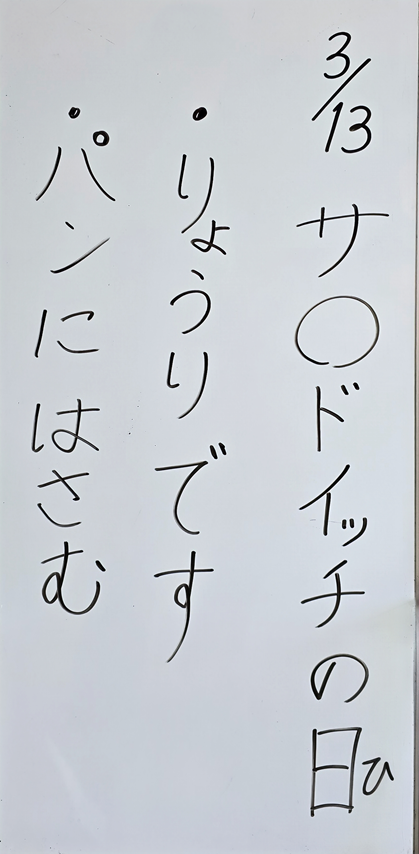 3/13 サ〇ドイッチの日ひ
・りょうりです
・パンにはさむ